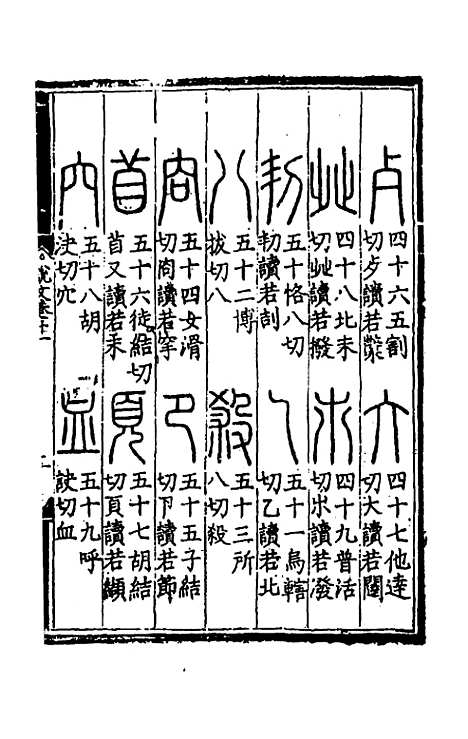 歺
四十六五割
切歺讀若櫱
大
四十七他達
切大讀若闥
癶
四十八北末
切癶讀若撥
朩
四十九普活
切朩讀若發
㓞
五十恪八切
㓞讀若
乙
五十一烏轄
切乙讀若北
八
五十二博
拔切八
殺
五十三所
八切殺
㕯
五十四女滑
切㕯讀若
卪
五十五子結
切卪讀若節
首
五十六徒結切
首又讀若末
頁
五十七胡結
切頁讀若纈
穴
五十八胡
決切穴
血
五十九呼
訣切血
說文卷